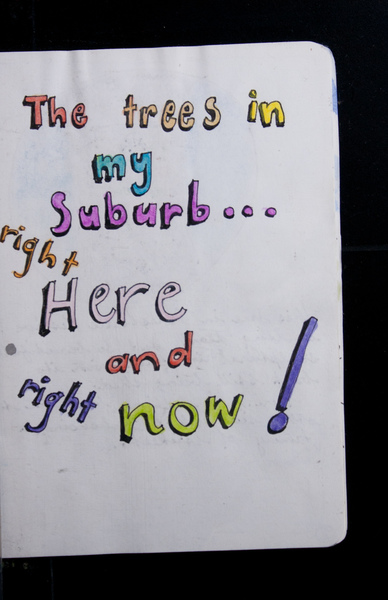 The trees in
my
Suburb...
right
Here
and
right now!